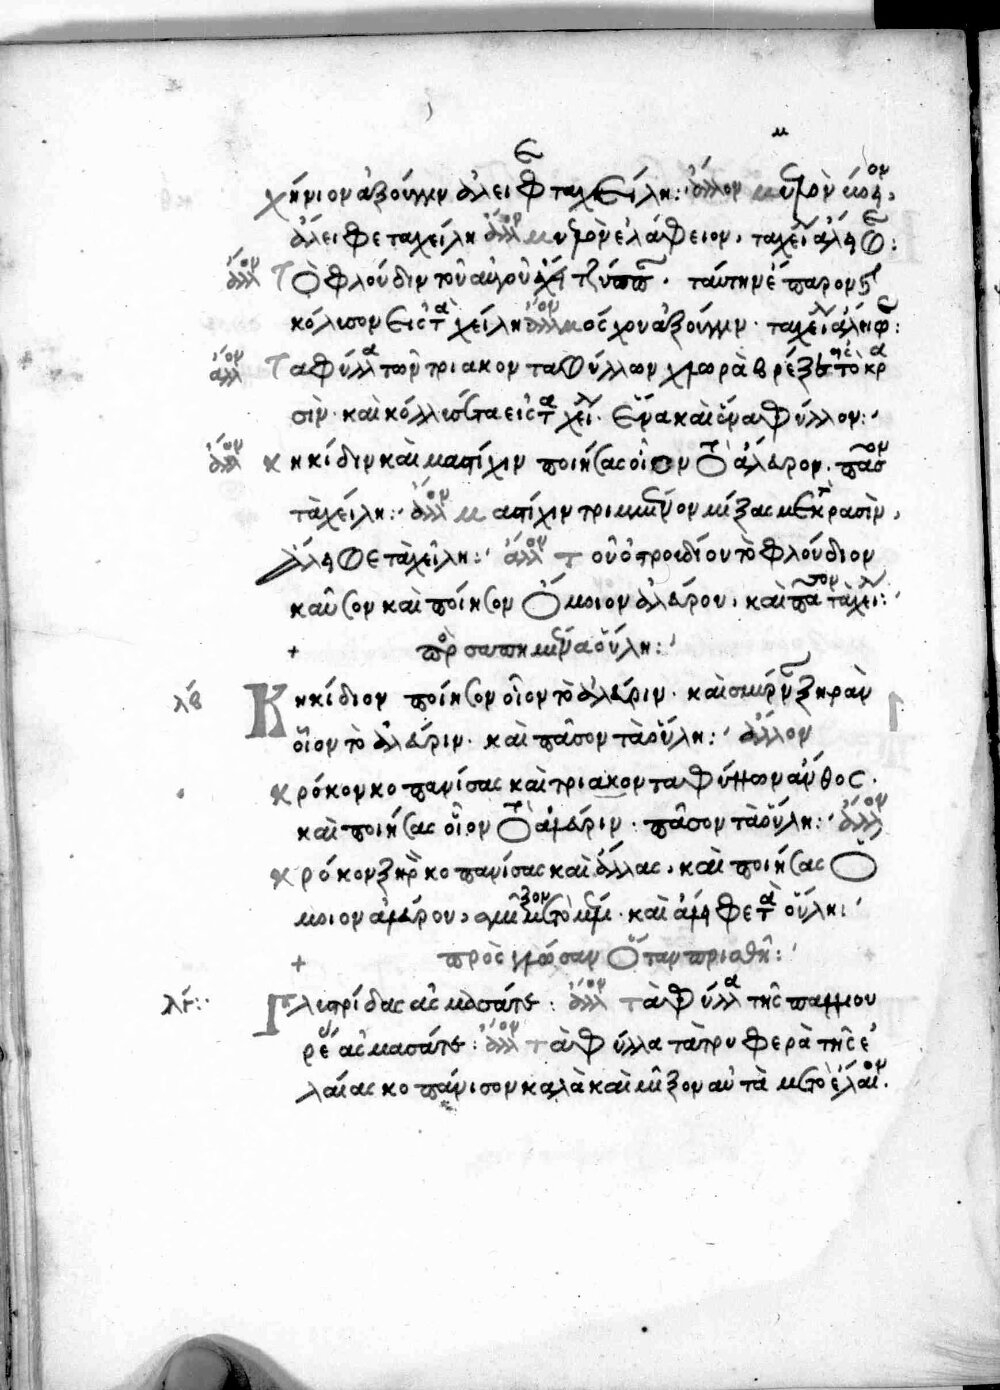 χήνιον ἀξούγγιν ἄλειφε τα χείλη: ἄλλον μυελὸν
ἄλειφε τα χείλη ἄλλον μυελὸν ἐλάφειον, τα χείλη ἄλειφε:
ἄλλον Τὸ φλούδιν τοῦ αὐγοῦ ταύτην ἔπαρον
κόλισον εἰς τὰ χείλη ἄλλον μόσχου ἀξούγγιν· τα χείλη ἄληφε:
ἄλλον Τα φύλλα τῶν τριακονταφύλλων χλωρὰ βρέξε εἰς τὸ κρα
σὶν· καὶ κόλλισον τα εἰς τὰ χείλη· ἕνα καὶ ἕνα φύλλον:
ἄλλον Κηκίδιν καὶ μαστίχιν ποιήσας οἷον τὸ ἀλεύρον· πάσον
τὰ χείλη: ἄλλον μαστίχιν τριμμένον μίξας με κρασὶν,
ἄληφε τὰ χείλη: ἄλλον τοῦ ὀστροιδίου τὸ φλούδιον
καῦσον καὶ ποίησον ὅμοιον ἀλεύρου, καὶ πάσον τὰ χείλη:
+ πρὸς σαπημένα οὔλη:
λβ Κηκίδιον ποίησον οἷον τὸ ἀλεύριν· καὶ σμύρναν ξηρὰν
οἷον τὸ ἀλεύριν· καὶ πᾶσον τὰ οὔλη: ἄλλον
κρόκον κοπανίσας καὶ τριακονταφύλλων ἄνθος·
καὶ ποιήσας οἷον τὸ ἀλεύριν· πᾶσον τὰ οὔλη: ἄλλον
κρόκον ξηρὸν κοπανίσας καὶ ἄλλας, καὶ ποιήσας ὅ
μοιον ἀλεύρου, καὶ ἄληφε τὰ οὔλη:
+ πρὸς γλῶσαν ὅταν πρισθῆ: +
λγ: Γλιστρίδας ἂς μασάται: ἄλλον τὰ φύλλα τῆς παμμου
ρέας ἂς μασάται: ἄλλον τὰ φύλλα τὰ τρυφερὰ τῆς ἐ
λαίας κοπάνισον καλὰ καὶ μίξον αὐτὰ με τὸ ἐλαίον.